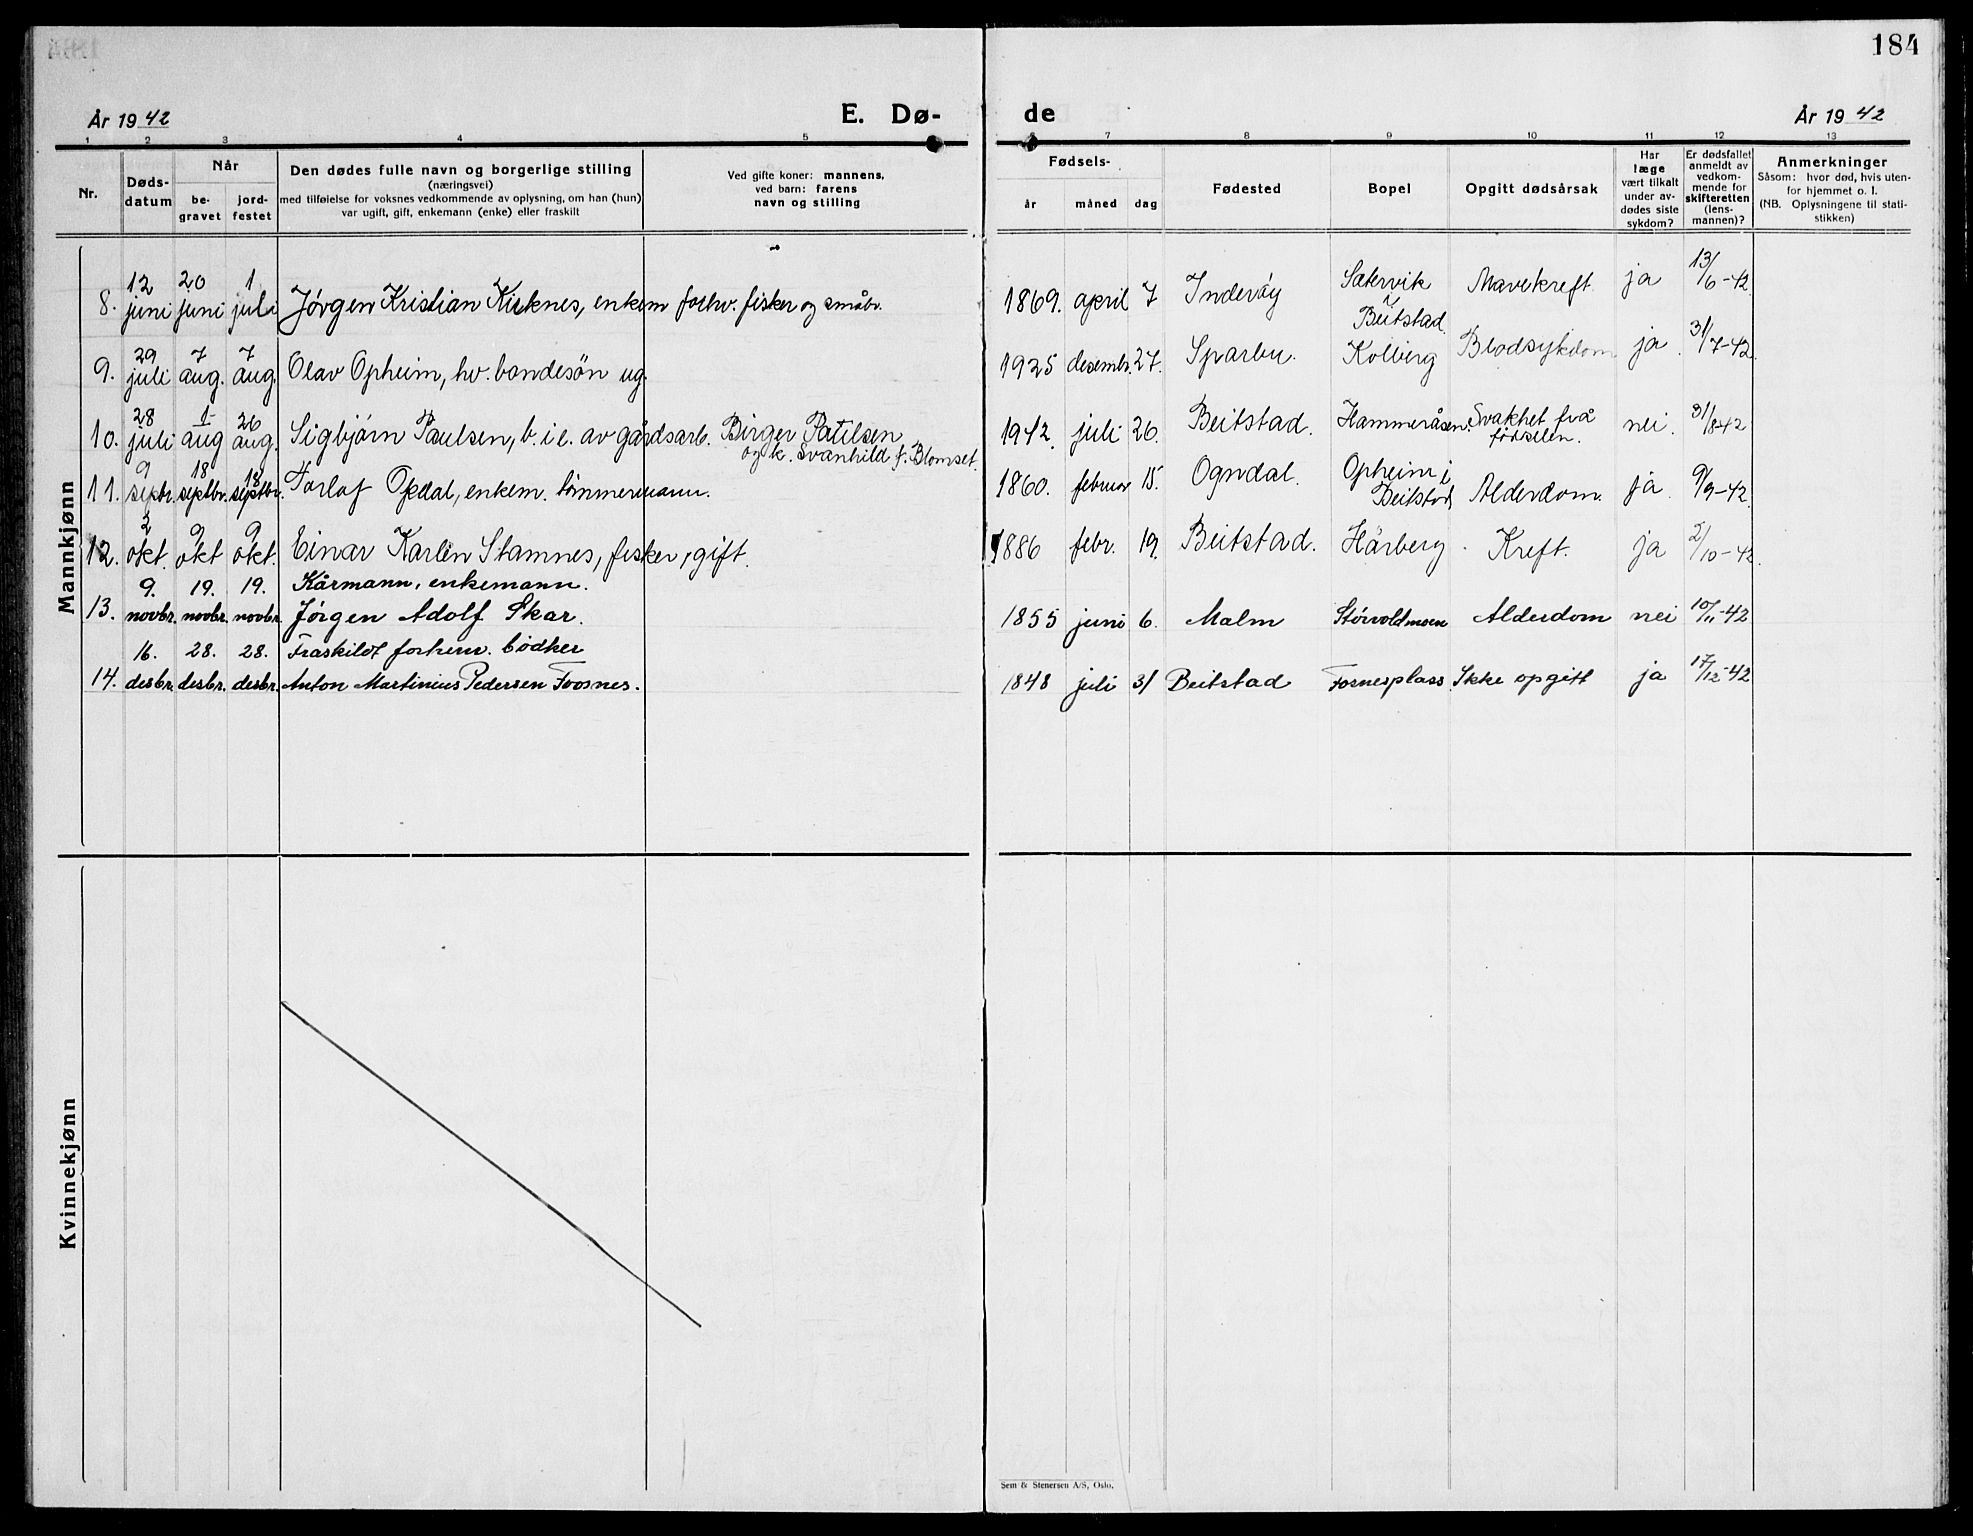 184
År 1942 E. Dø- de År 1942
1 2 3 4 5 6 7 8 9 10 11 12 13
Nr.
Døds-
datum
Når
be-
gravet
jord-
festet
Den dødes fulle navn og borgerlige stilling
(næringsvei)
med tilføielse for voksnes vedkommende av oplysning, om han (hun)
var ugift, gift, enkemann (enke) eller fraskilt
Ved gifte koner: mannens,
ved barn: farens
navn og stilling
Fødsels-
år måned dag
Fødested
Bopel
Opgitt dødsårsak
Har
læge
vært tilkalt
under av-
dødes siste
sykdom?
Er dødsfallet
anmeldt av
vedkom-
mende for
skifteretten
(lens-
mannen)?
Anmerkninger
Såsom: hvor død, hvis uten-
for hjemmet o. l.
(NB. Oplysningene til stati-
stikken)
Mannkjønn
12 20 1 Sætervik 13/6-42
8. juni juni juli Jørgen Kristian Kirknes, enkem forhv. fisker og småbr. 1869. april 7 Inderøy i Mavekreft ja
Beitstad
29 7 7 31/7-42
9. juli aug. aug. Olav Opheim, hv. bondesøn ug. 1925 desembr. 27. Sparbu. Kolberg Blodsykdom ja.
28 1 26 Svakhet frå 31/8-42
10. juli aug aug. Sigbjørn Paulsen, b. i e. av gårdsarb. Birger Paulsen 1942. juli 26. Beitstad. Hammeråsen. fødselen. nei.
og k. Svanhild f. Blomset.
9 18 18 Opheim i
11. septbr. septbr. septbr. Torlof Opdal, enkem. tømmermann. 1860. februar 15. Ogndal. Beitstad Alderdom. ja. 9/9-42
2 9 9
12. okt. okt okt. Einar Karlin Stamnes, fisker, gift. 1886 febr. 19. Beitstad. Hårberg. Kreft. ja 2/10-42
9. 19. 19. Kårmann, enkemann.
13. novbr. novbr. novbr. Jørgen Adolf Skar. 1855 juni 6. Malm Størvoldmoen Alderdom nei 10/11-42
16. 28. 28. Fraskilt forhenv. bødker
14. desbr. desbr. desbr. Anton Martinius Pedersen Fosnes. 1848 juli 31 Beitstad Fosnesplass Ikke opgitt ja 17/12-42
Kvinnekjønn
Sem & Stenersen A/S, Oslo.